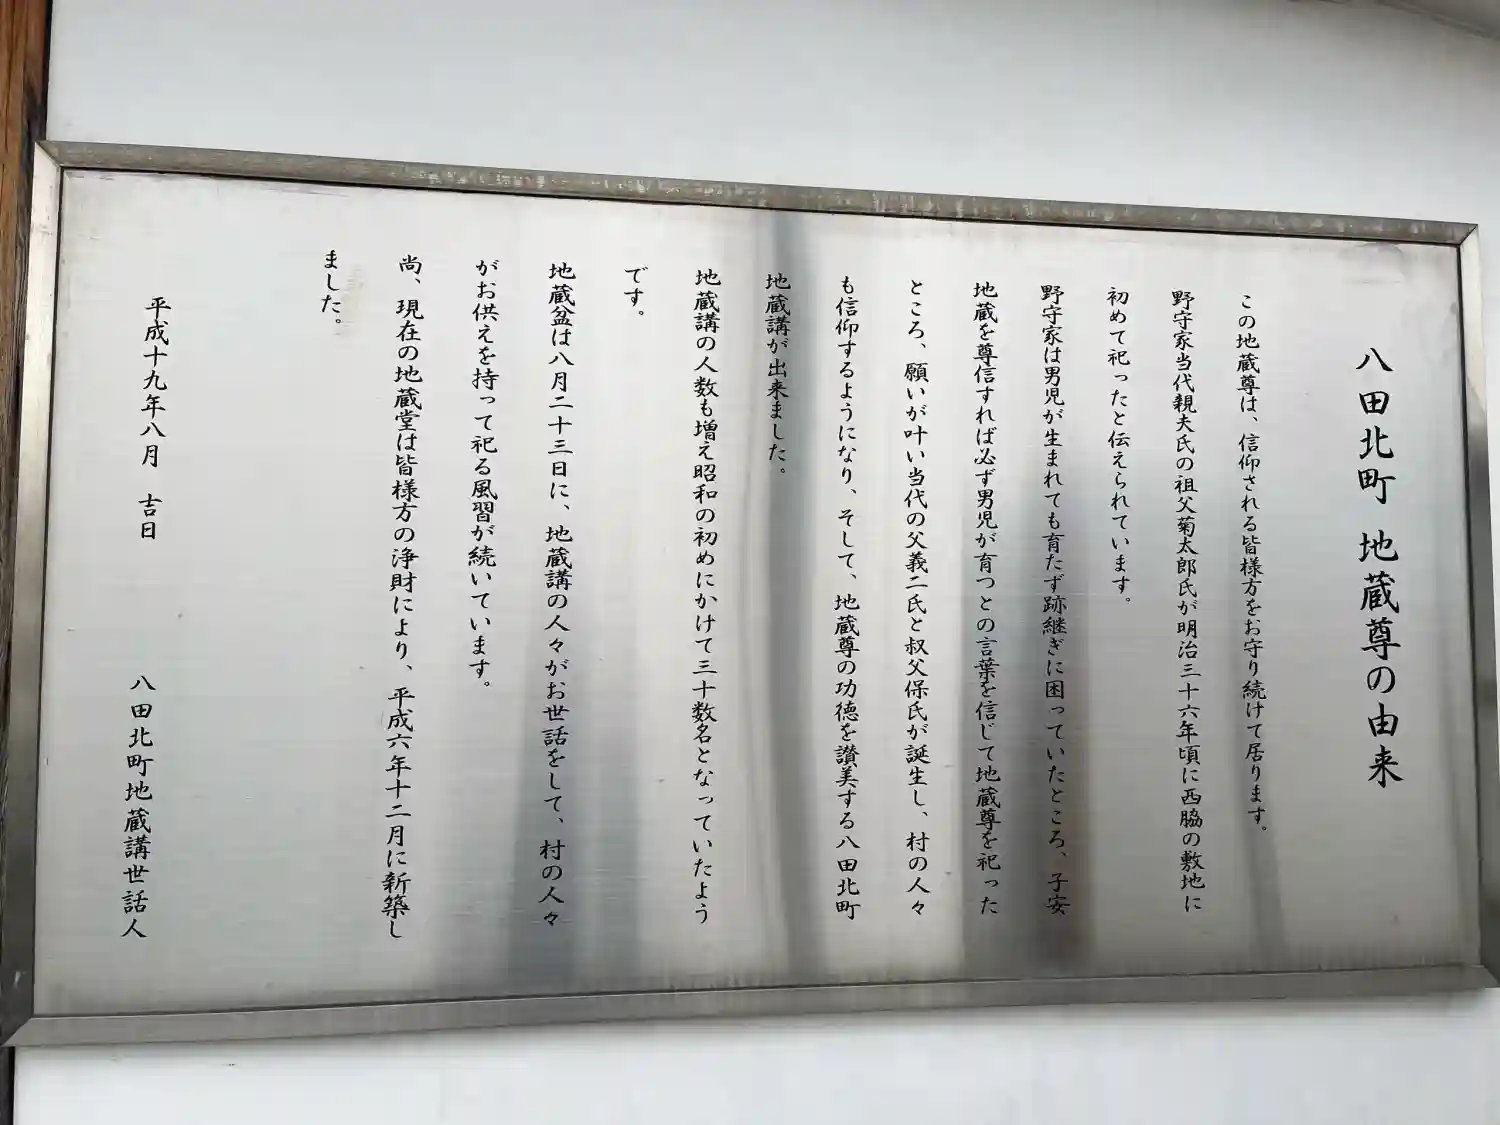 八田北町 地蔵尊の由来
この地蔵尊は、信仰される皆様方をお守り続けて居ります。
野守家当代親夫氏の祖父菊太郎氏が明治三十六年頃に西脇の敷地に
初めて祀ったと伝えられています。
野守家は男児が生まれても育たず跡継ぎに困っていたところ、子安
地蔵を尊信すれば必ず男児が育つとの言葉を信じて地蔵尊を祀った
ところ、願いが叶い当代の父義二氏と叔父保氏が誕生し、村の人々
も信仰するようになり、そして、地蔵尊の功徳を讃美する八田北町
地蔵講が出来ました。
地蔵講の人数も増え昭和の初めにかけて三十数名となっていたよう
です。
地蔵盆は八月二十三日に、地蔵講の人々がお世話をして、村の人々
がお供えを持って祀る風習が続いています。
尚、現在の地蔵堂は皆様方の浄財により、平成六年十二月に新築し
ました。
平成十九年八月 吉日
八田北町地蔵講世話人